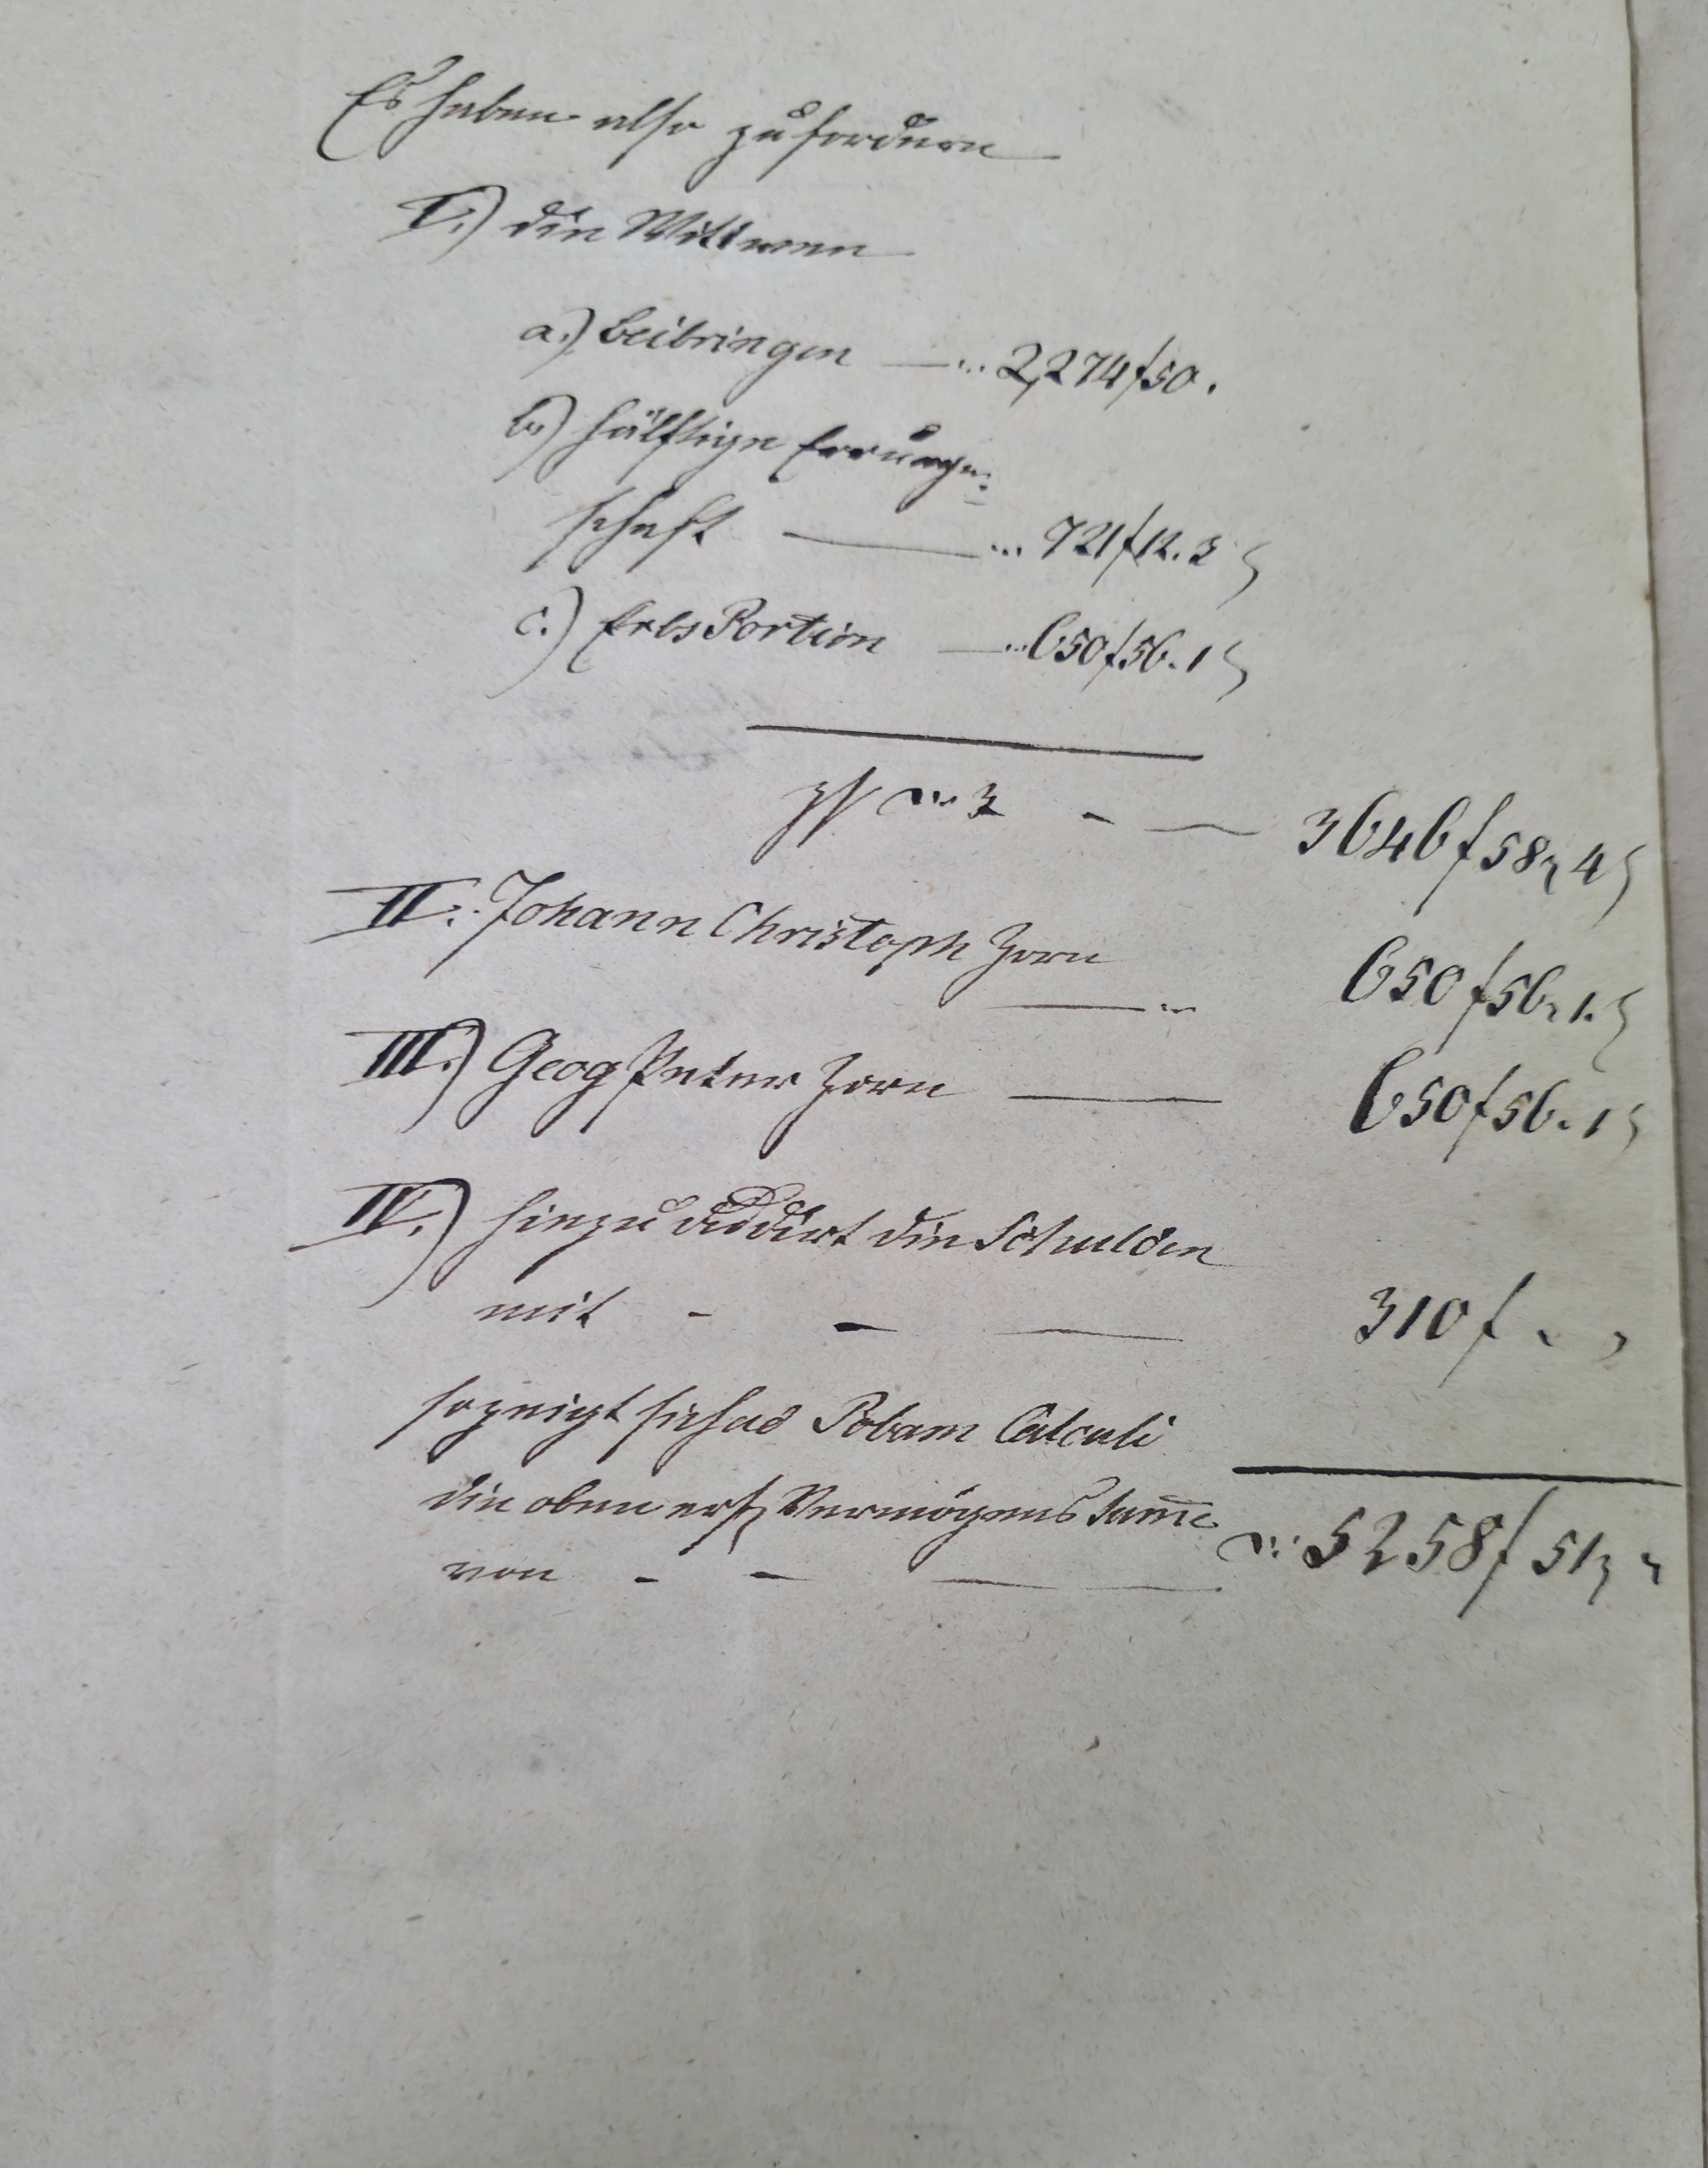 Es haben also zu fordern
I.) die Wittwe
a.) Beibringen — ... 2,274 f 50.
b.) hälftige Errungen=
schaft — ... 721 f 12. 3
c.) Erbs Portion — ... 650 f 56. 1
— 3646 f 58 4
II. Johann Christoph Zorn
— 650 f 56. 1.
III.) Geog Peter Zorn — 650 f 56. 1
IV.) hinzu addirt die Schulden
mit - - — 310 f . .
so zeigt sich ad Probam Calculi
die oben Vermögens Sum̄e
von - - — 5258 f 51